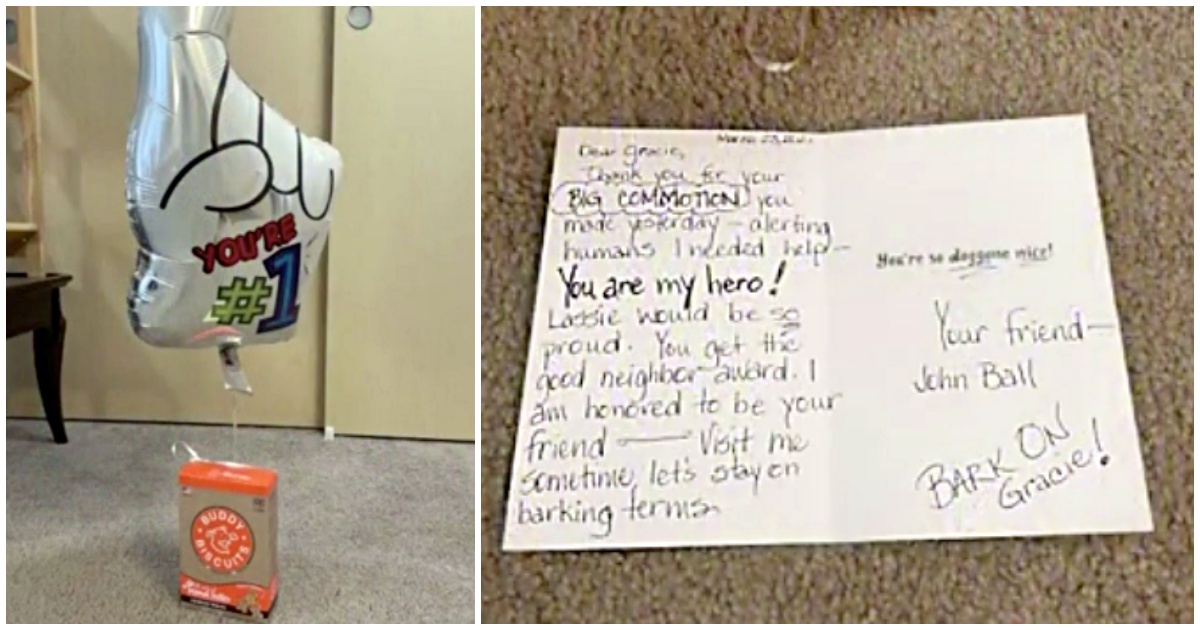 YOU'RE
#1
BUDDY
BISCUITS
Dear Gracie,
Thank you for your
BIG COMMOTION you
made yesterday – alerting
humans I needed help –
You are my hero!
Lassie would be so
proud. You get the
good neighbor award. I
am honored to be your
friend — Visit me
sometime, let's stay on
barking terms.
You're so doggone nice!
Your friend –
John Ball
BARK ON
Gracie!